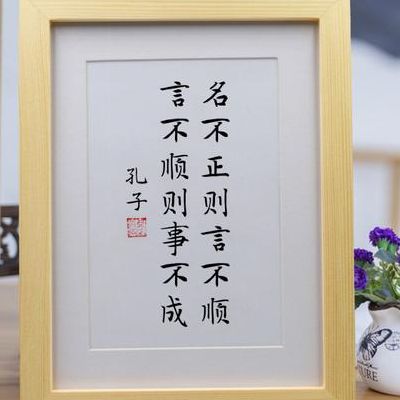 名不正则言不顺
言不顺则事不成
孔子